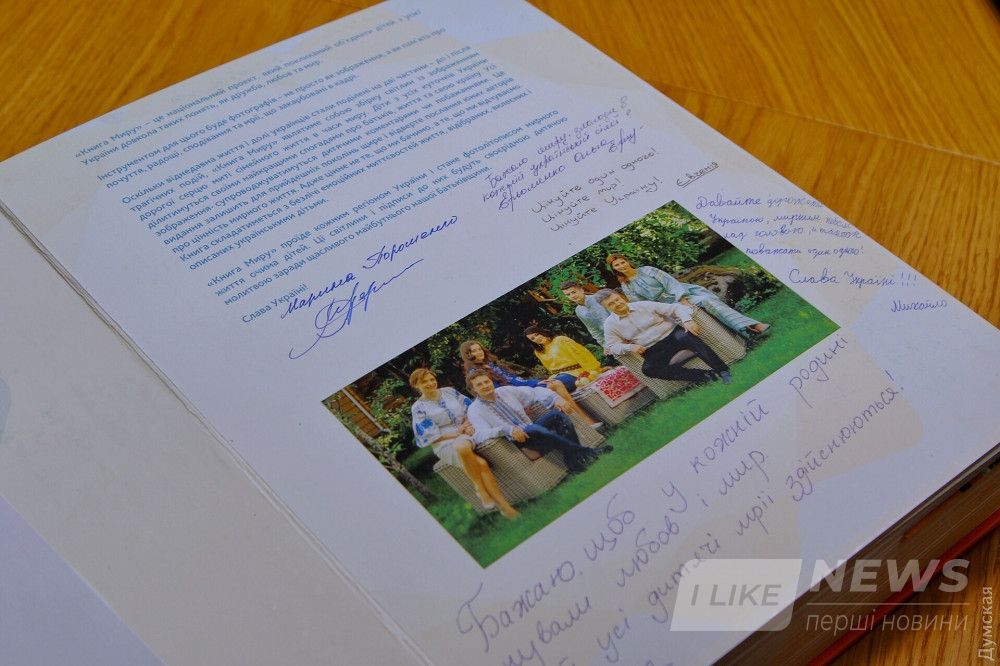 «Книга Миру» – це національний проект, який покликаний об'єднати дітей з усієї
України довкола таких понять, як дружба, любов та мир.
Інструментом для цього буде фотографія – не просто як зображення, а як пам'ять про
почуття, радощі, сподівання та мрії, що закарбовані в кадрі.
Оскільки віднедавна життя і долі українців стали поділені на дві частини – до і після
трагічних подій, «Книга Миру» являтиме собою збірку світлин із зображенням
дорогої серцю миті сімейного життя в часи миру. Діти з усіх куточків України
ділитимуться своїми найкращими спогадами про батьків, родину та свою країну. Усі
зображення супроводжуватимуться дитячими коментарями чи побажаннями. Це
видання залишить для прийдешніх поколінь щире і відверте послання юних авторів
про цінність мирного життя. Адже цінне не те, що ми бачимо, а те, що ми відчуваємо.
Книга складатиметься з безлічі емоційних миттєвостей життя, відібраних, виклеєних і
описаних українськими дітьми.
«Книга Миру» пройде кожним регіоном України і стане фотолітописом мирного
життя очима дітей. Ці світлини і підписи до них будуть своєрідною дитячою
молитвою заради щасливого майбутнього нашої Батьківщини.
Слава Україні!
Марина Порошенко
Бажаю миру, злагоди в
кожній українській сім'ї
Цінуйте один одного!
Цінуйте мир!
Цінуйте Україну!
Євгеній
Давайте
Україною, мирним
над головою, а також
поважати один одного!
Слава Україні!!!
Михайло
Бажаю, щоб у кожній родині
панували любов і мир
й усі дитячі мрії здійснюються!
I LIKE NEWS
перші новини
Думская